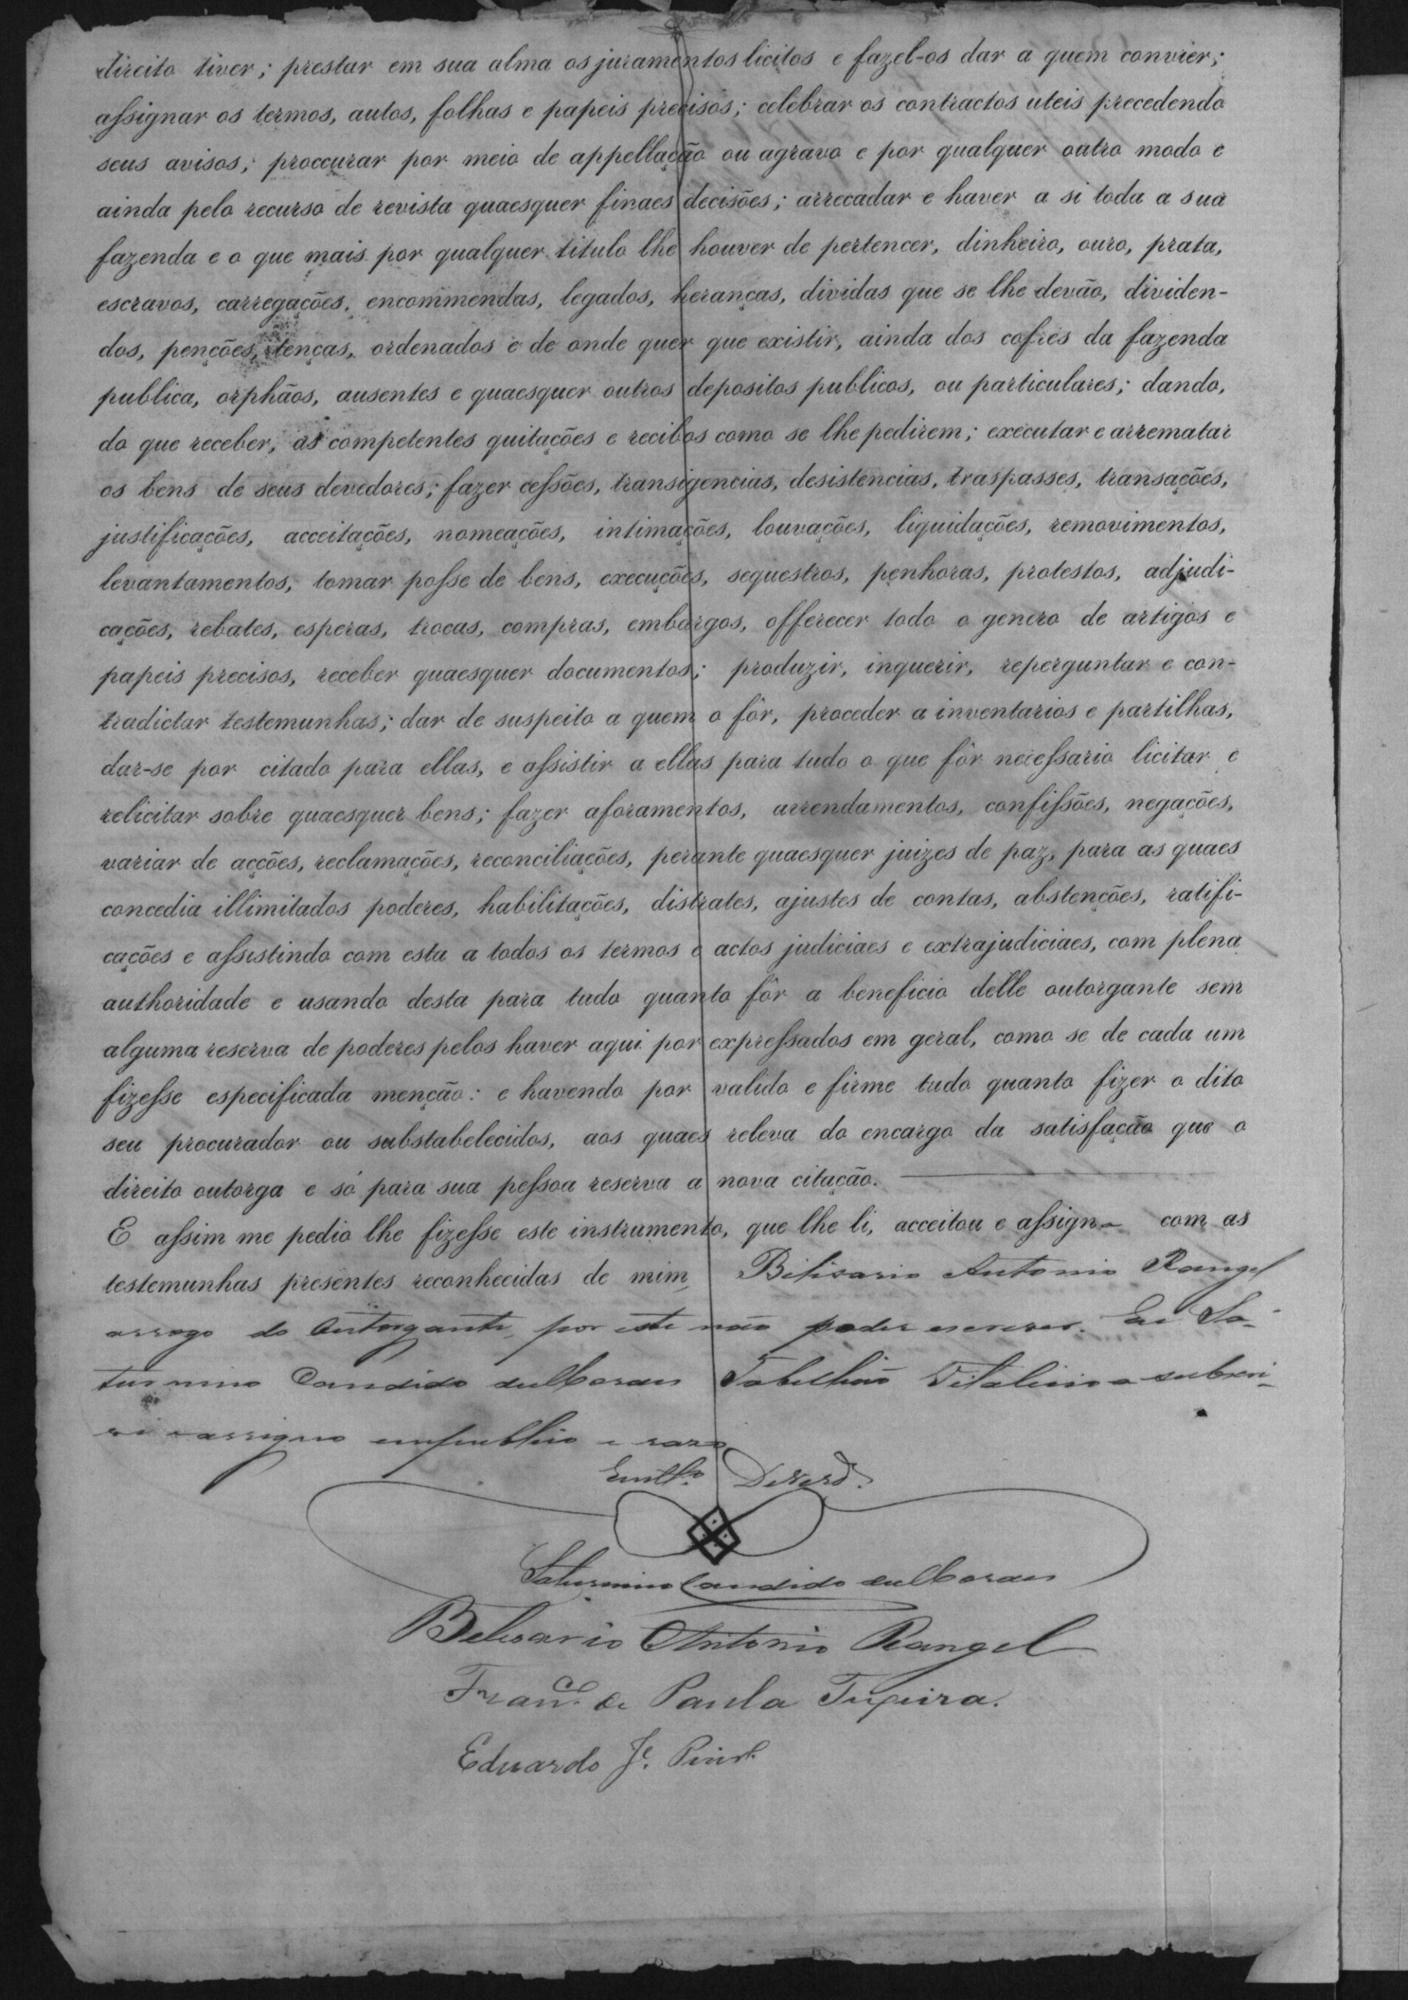 direito tiver; prestar em sua alma os juramentos licitos e fazel-os dar a quem convier;
assignar os termos, autos, folhas e papeis precisos; celebrar os contractos uteis precedendo
seus avisos; proccurar por meio de appellação ou agravo e por qualquer outro modo e
ainda pelo recurso de revista quaesquer finaes decisões; arrecadar e haver a si toda a sua
fazenda e o que mais por qualquer titulo lhe houver de pertencer, dinheiro, ouro, prata,
escravos, carregações, encommendas, legados, heranças, dividas que se lhe devão, dividen-
dos, penções, tenças, ordenados e de onde quer que existir, ainda dos cofres da fazenda
publica, orphãos, ausentes e quaesquer outros depositos publicos, ou particulares; dando,
do que receber, as competentes quitações e recibos como se lhe pedirem; executar e arrematar
os bens de seus devedores; fazer cessões, transigencias, desistencias, traspasses, transações,
justificações, acceitações, nomeações, intimações, louvações, liquidações, removimentos,
levantamentos, tomar posse de bens, execuções, sequestros, penhoras, protestos, adjudi-
cações, rebates, esperas, trocas, compras, embargos, offerecer todo o genero de artigos e
papeis precisos, receber quaesquer documentos; produzir, inquerir, reperguntar e con-
tradictar testemunhas; dar de suspeito a quem o fôr, proceder a inventarios e partilhas,
dar-se por citado para ellas, e assistir a ellas para tudo o que fôr necessario licitar e
relicitar sobre quaesquer bens; fazer aforamentos, arrendamentos, confissões, negações,
variar de acções, reclamações, reconciliações, perante quaesquer juizes de paz, para as quaes
concedia illimitados poderes, habilitações, distrates, ajustes de contas, abstenções, ratifi-
cações e assistindo com esta a todos os termos e actos judiciaes e extrajudiciaes, com plena
authoridade e usando desta para tudo quanto fôr a beneficio delle outorgante sem
alguma reserva de poderes pelos haver aqui por expressados em geral, como se de cada um
fizesse especificada menção: e havendo por valido e firme tudo quanto fizer o dito
seu procurador ou substabelecidos, aos quaes releva do encargo da satisfação que o
direito outorga e só para sua pessoa reserva a nova citação.
E assim me pedio lhe fizesse este instrumento, que lhe li, acceitou e assign- com as
testemunhas presentes reconhecidas de mim, Belisario Antonio Rangel
arrogo do Outorgante, por este não poder escrever. Eu Sa-
turnino Candido de Moraes Tabellião Vitalicio o subscri-
vi e assigno em publico e raso
Em test.º De verd.e
Saturnino Candido de Moraes
Belisario Antonio Rangel
Fran.co de Paula Teixeira.
Eduardo J.e